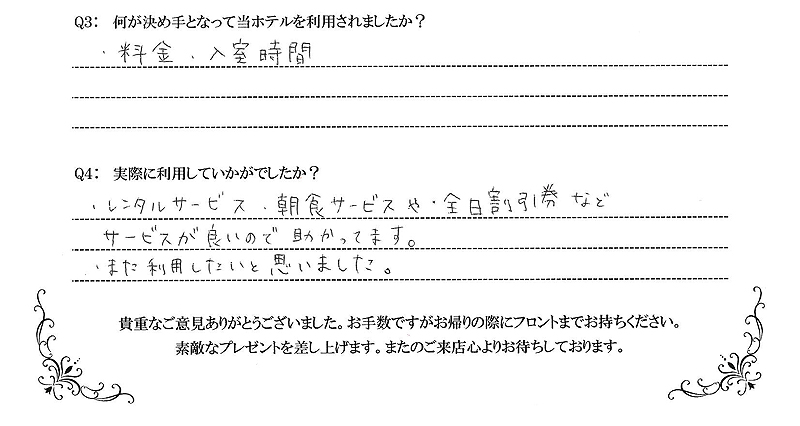 Q3： 何が決め手となって当ホテルを利用されましたか？
・料金 ・入室時間
Q4： 実際に利用していかがでしたか？
・レンタルサービス ・朝食サービスや・全日割引券など
サービスが良いので助かってます。
・また利用したいと思いました。
貴重なご意見ありがとうございました。お手数ですがお帰りの際にフロントまでお持ちください。
素敵なプレゼントを差し上げます。またのご来店心よりお待ちしております。